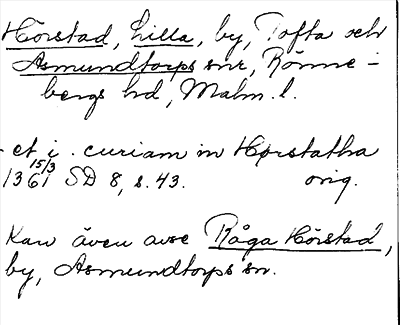 Hörstad, Lilla, by, Tofta och
Asmundtorps snr, Rönne-
bergs hd, Malm. l.
- et i . curiam in Horstatha
15/3
1361 SD 8, s. 43. orig.
Kan även avse Råga Hörstad,
by, Asmundtorps sn.